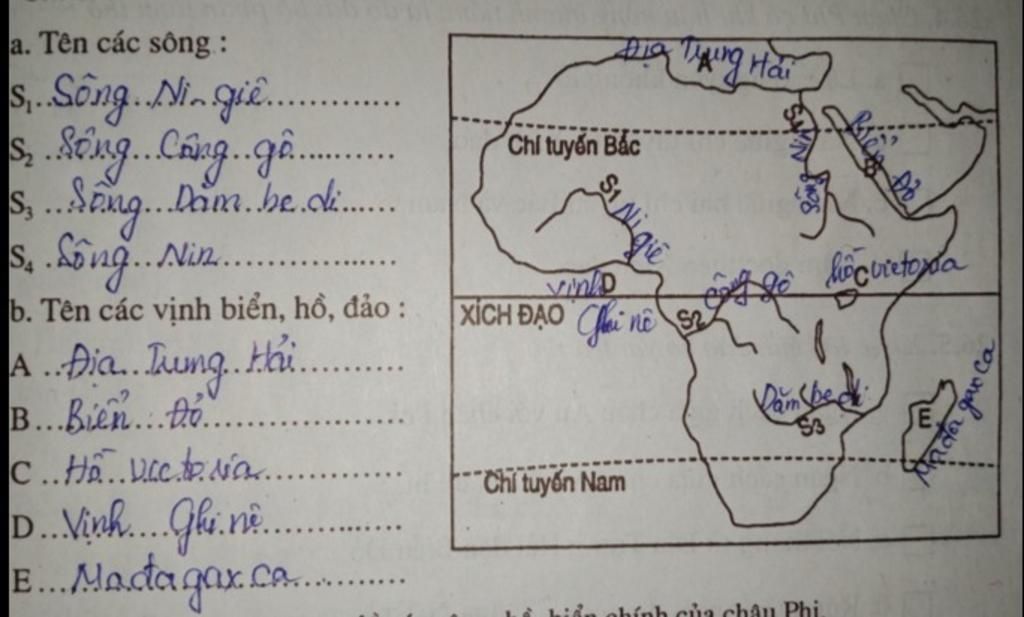 a. Tên các sông :
S₁ .. Sông Ni-giê
S₂ .. Sông Công gô
S₃ ... Sông Dăm be di
S₄ .. Sông Nin
b. Tên các vịnh biển, hồ, đảo :
A .. Địa Trung Hải
B ... Biển Đỏ
C .. Hồ victoria
D ... Vịnh Ghi nê
E ... Mađagaxca
Địa Trung Hải
A
S4
Sông Nin
Biển
B
Đỏ
Chí tuyến Bắc
S1
Ni giê
Công gô
hồ victoria
C
vịnh
D
Ghi nê
XÍCH ĐẠO
S2
Dăm be di
S3
E
Mađagaxca
Chí tuyến Nam
biển chính của châu Phi.